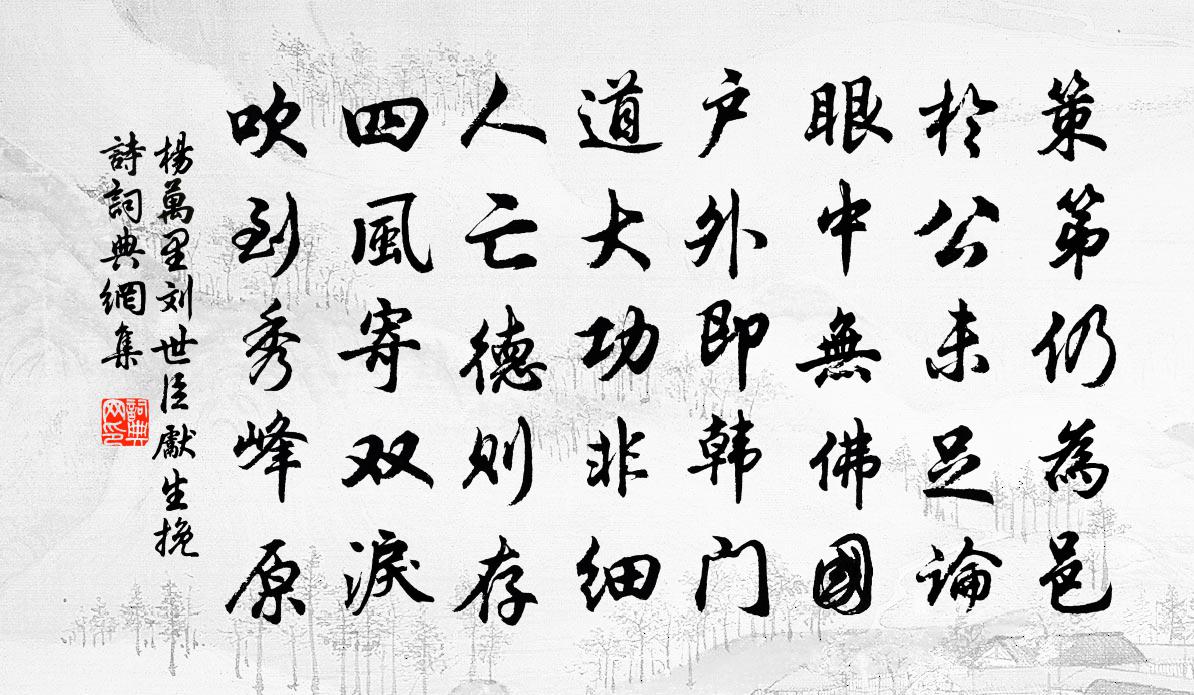 策第仍為邑
於公未足論
眼中無佛國
户外即韩门
道大功非细
人亡德则存
四風寄双淚
吹到秀峰原
楊萬里刘世臣獻生挽
詩詞典網集
詞典网印